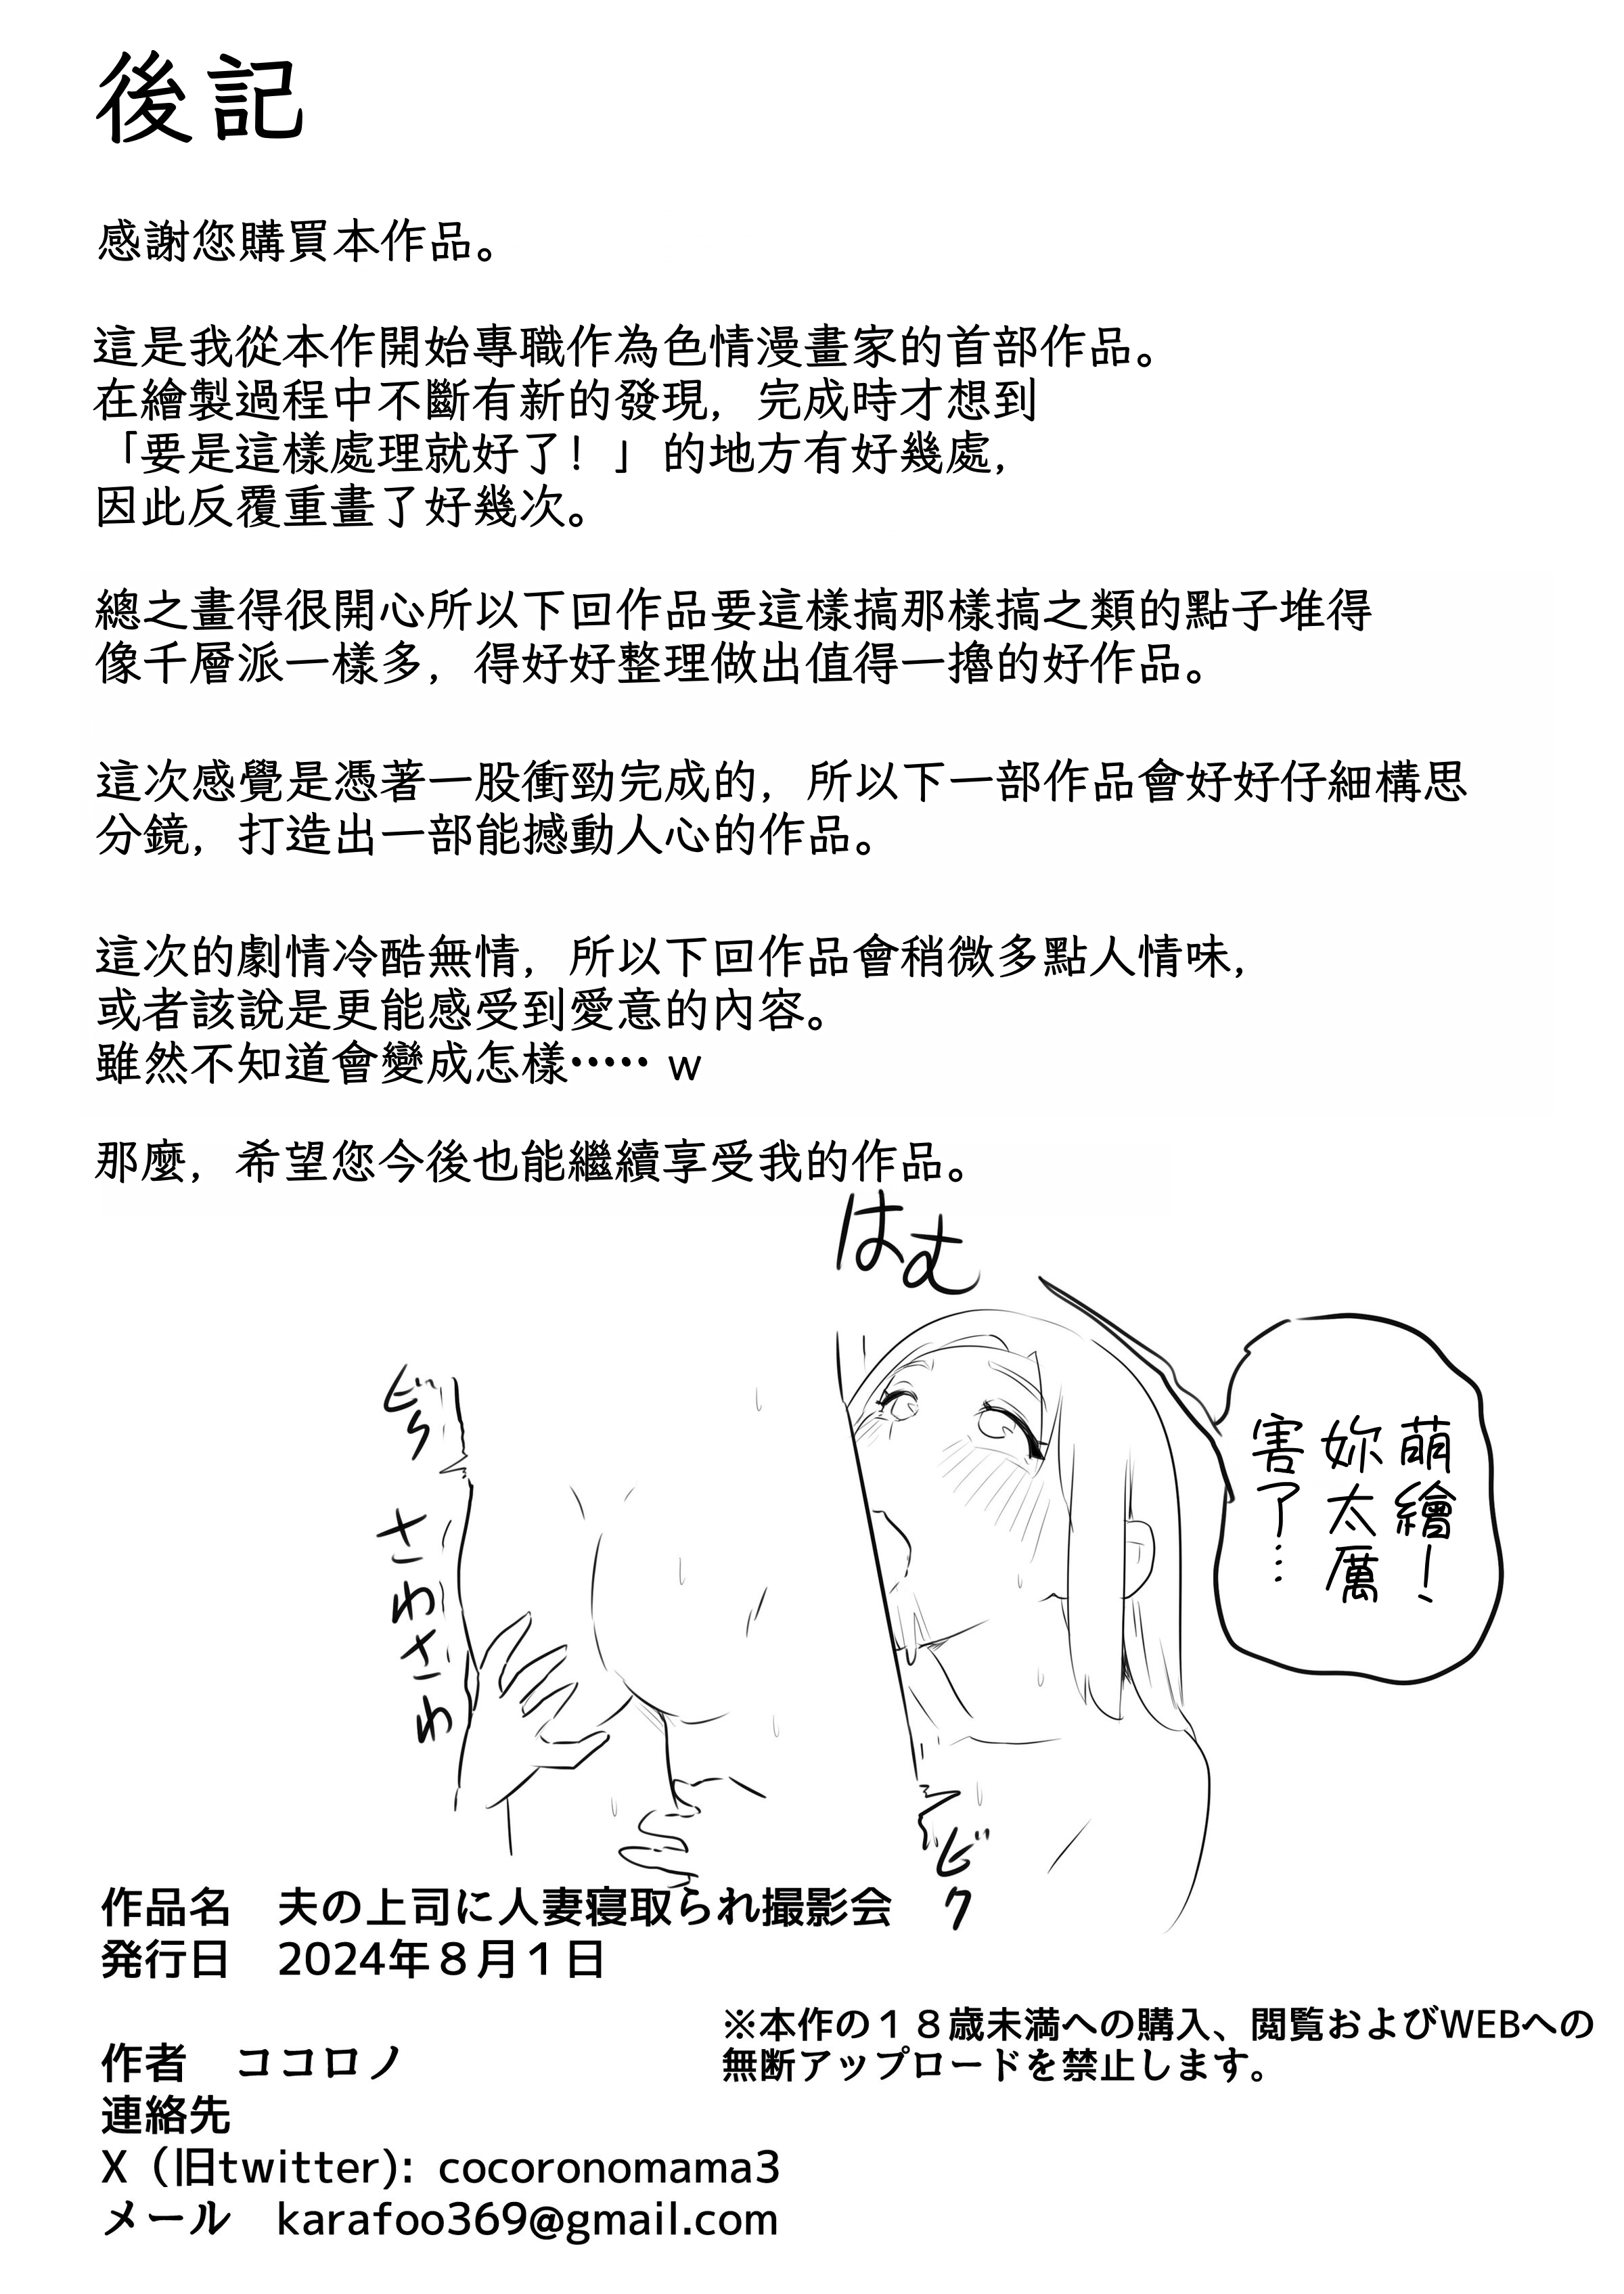 後記
感謝您購買本作品。
這是我從本作開始專職作為色情漫畫家的首部作品。
在繪製過程中不斷有新的發現，完成時才想到
「要是這樣處理就好了！」的地方有好幾處，
因此反覆重畫了好幾次。
總之畫得很開心所以下回作品要這樣搞那樣搞之類的點子堆得
像千層派一樣多，得好好整理做出值得一擼的好作品。
這次感覺是憑著一股衝勁完成的，所以下一部作品會好好仔細構思
分鏡，打造出一部能撼動人心的作品。
這次的劇情冷酷無情，所以下回作品會稍微多點人情味，
或者該說是更能感受到愛意的內容。
雖然不知道會變成怎樣⋯⋯ w
那麼，希望您今後也能繼續享受我的作品。
はむ
萌繪！
妳太厲
害了…
さわさわ
ビク
作品名　夫の上司に人妻寝取られ撮影会
発行日　2024年８月１日
※本作の１８歳未満への購入、閲覧およびWEBへの
無断アップロードを禁止します。
作者　ココロノ
連絡先
X（旧twitter): cocoronomama3
メール　karafoo369@gmail.com